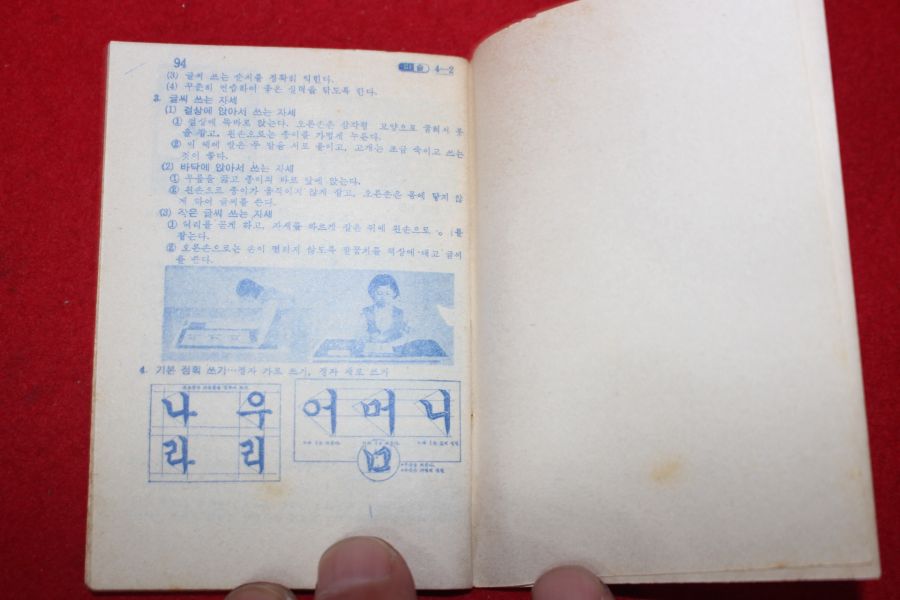 94
미술 4-2
(3) 글씨 쓰는 순서를 정확히 익힌다.
(4) 꾸준히 연습하여 좋은 실력을 닦도록 한다.
3. 글씨 쓰는 자세
(1) 걸상에 앉아서 쓰는 자세
① 걸상에 똑바로 앉는다. 오른손은 삼각형 모양으로 굽혀서 붓
을 잡고, 왼손으로는 종이를 가볍게 누른다.
② 이 때에 양은 두 발을 서로 붙이고, 고개는 조금 숙이고 쓰는
것이 좋다.
(2) 바닥에 앉아서 쓰는 자세
① 무릎을 꿇고 종이의 바로 앞에 앉는다.
② 왼손으로 종이가 움직이지 않게 잡고, 오른손은 몸에 닿지 않
게 하여 글씨를 쓴다.
(3) 작은 글씨 쓰는 자세
① 허리를 곧게 하고, 자세를 바르게 왼손으로
잡는다.
② 오른손으로는 손이 떨리지 않도록 팔꿈치를 책상에 대고 글씨
를 쓴다.
4. 기본 점획 쓰기…정자 가로 쓰기, 정자 세로 쓰기
나 우
라 리
어 머 니
ㅁ